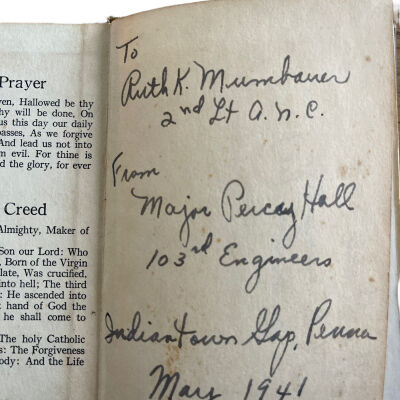 Prayer
ven, Hallowed be thy
hy will be done, On
us this day our daily
passes, As we forgive
And lead us not into
n evil. For thine is
d the glory, for ever
Creed
Almighty, Maker of
Son our Lord: Who
, Born of the Virgin
late, Was crucified,
into hell; The third
: He ascended into
hand of God the
he shall come to
The holy Catholic
s: The Forgiveness
ody: And the Life
To
Ruth K. Mumbauer
2nd Lt A. N. C.
From
Major Percay Hall
103rd Engineers
Indiantown Gap, Penna
May 1941